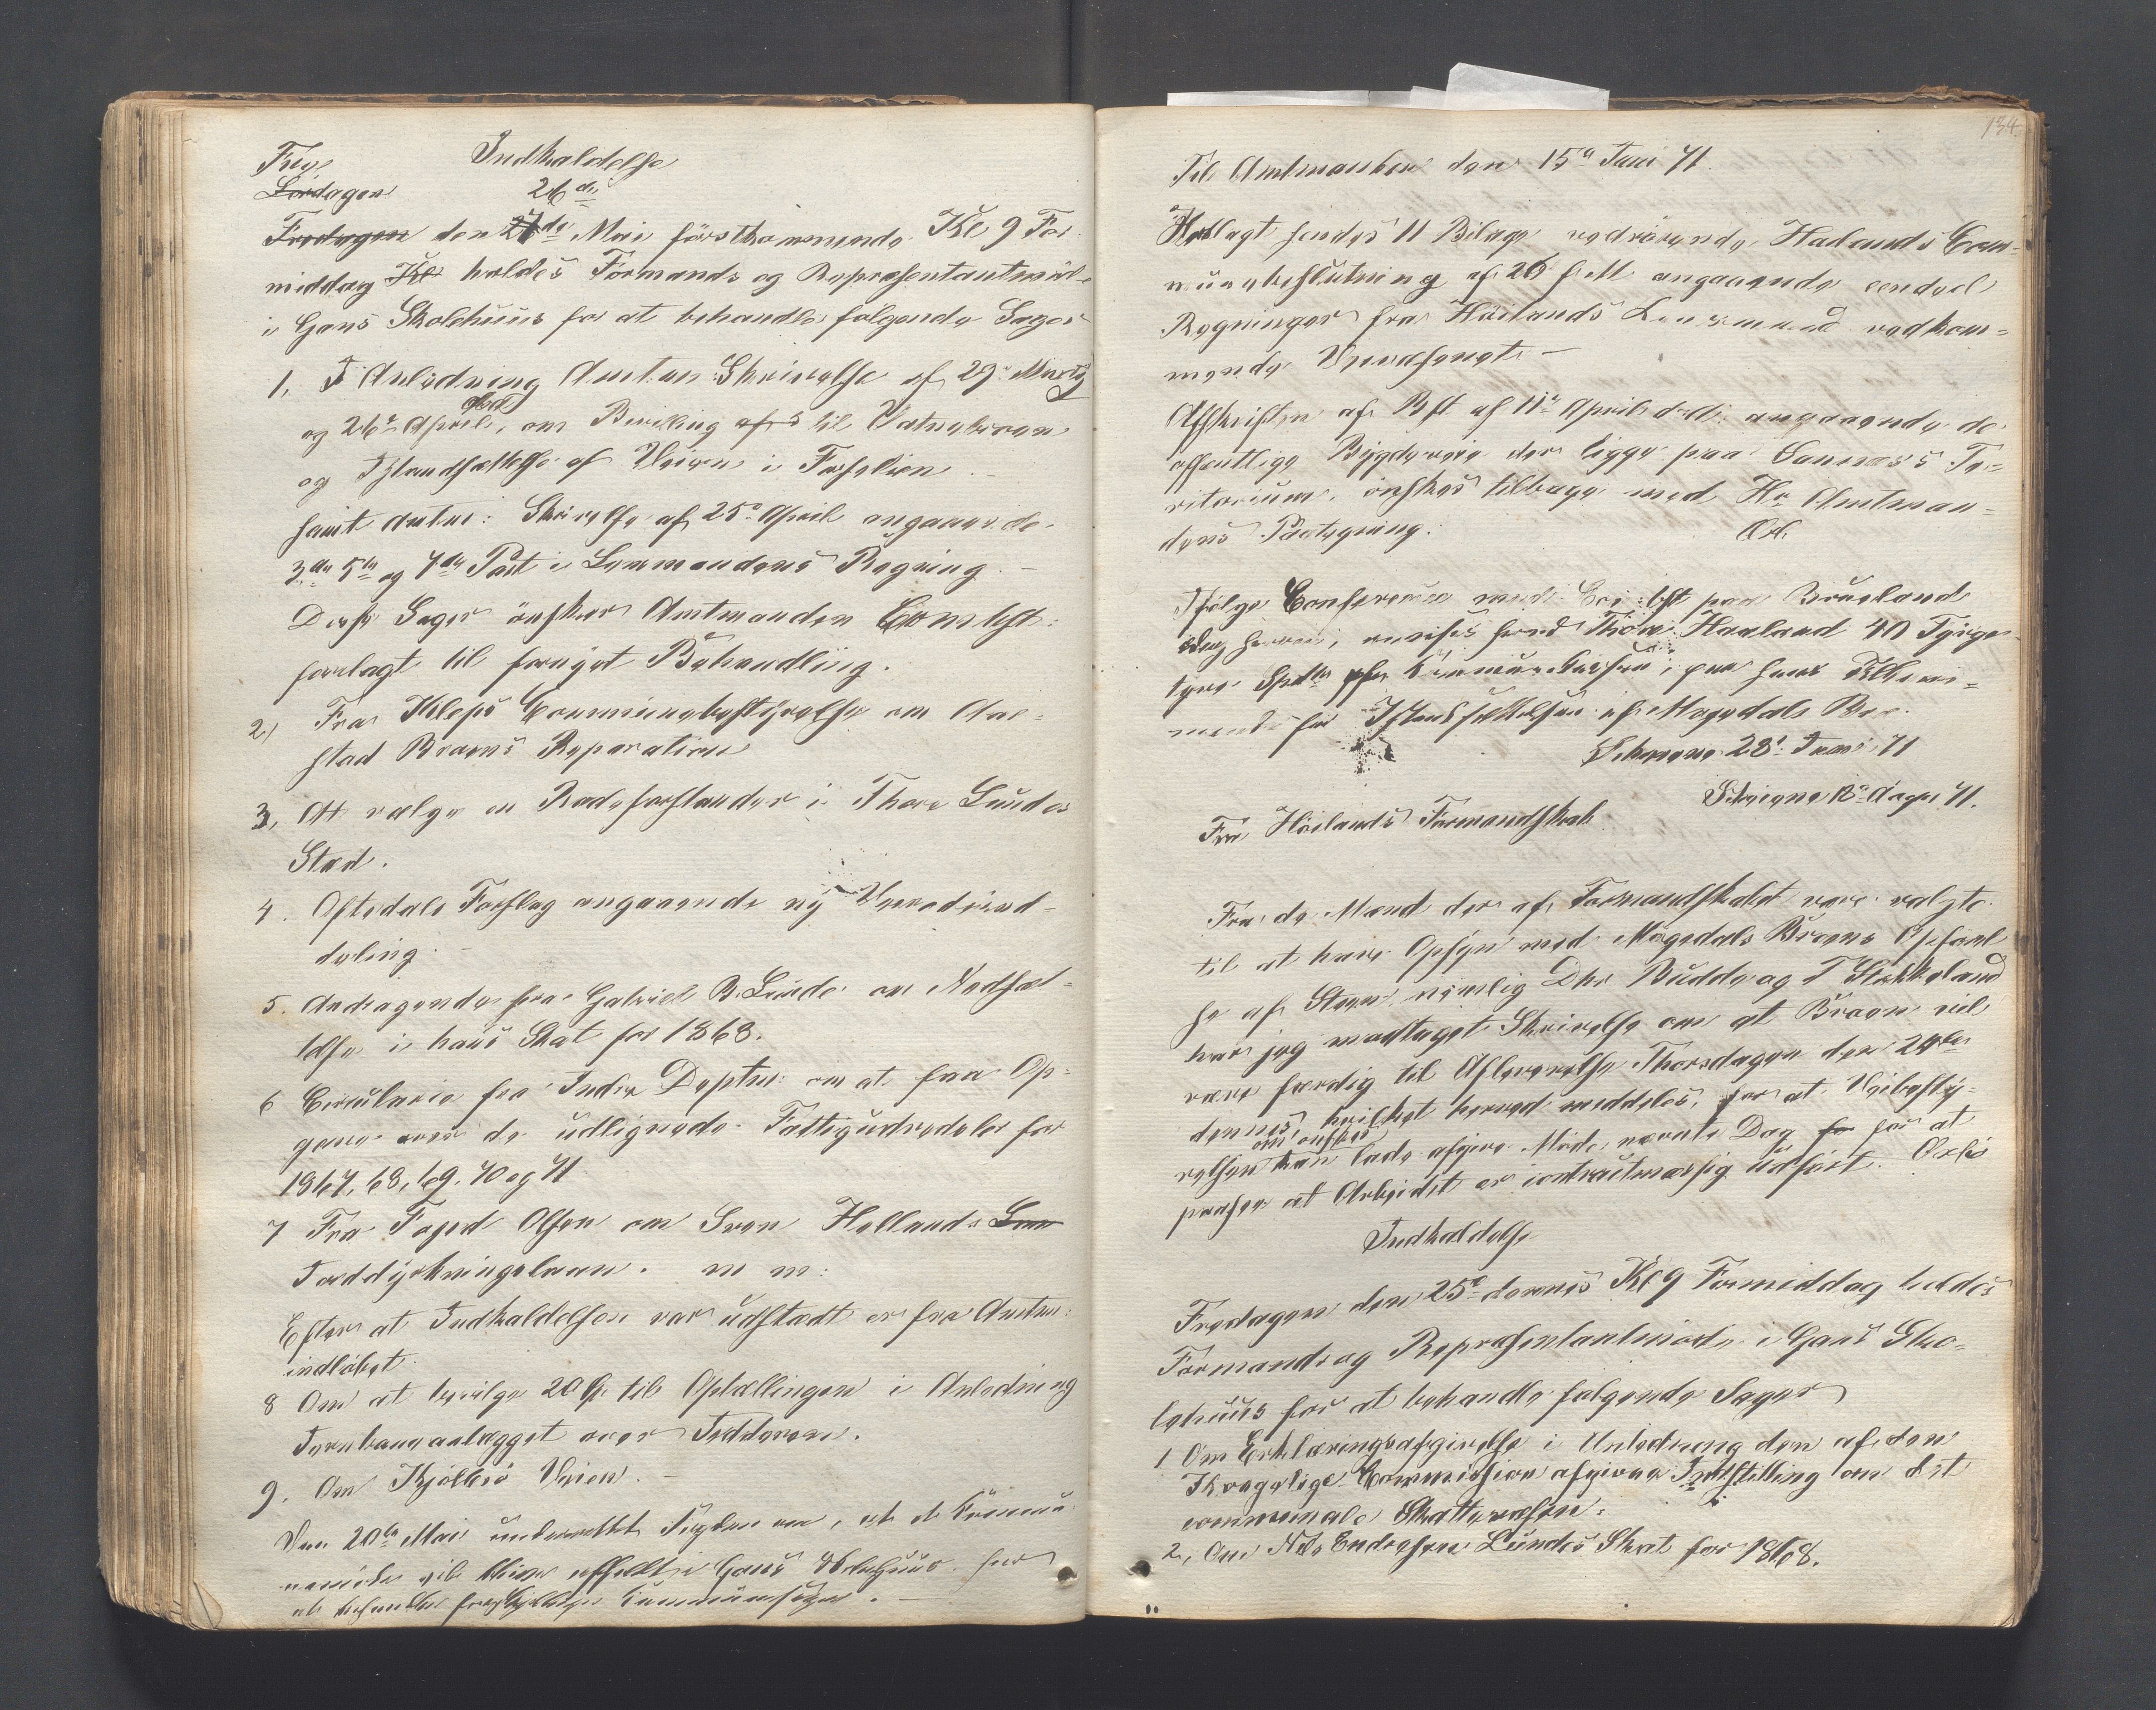 Indkaldelse
Frei
Lördagen 26de
Fredagen den 27de Mai förstkommende Kl 9 For
middag Kl holdes Formands og Repræsentantmöde
i Gans Skolehuus for at behandle fölgende Sager
1, I Anledning Amtm: Skrivelse af 29de Marts
og 26de April, om Bevilling til
og Istandsættelse af Veien i
samt Amtm: Skrivelse af 25de April angaaende
3die 5te og 7de Post i Lensmandens Regning. –
Disse Sager önsker Amtmanden Combst:
forelagt til fornyet Behandling.
2, Fra Kleps Communebestyrelse om Aae-
stad Broens Reparation
3, At vælge en Rodeforstander i Thore Lundes
Sted.
4. Aftedals Forslag angaaende ny Veirodeind-
deling. –
5. Andragende fra Gabriel B. Lunde om Nedsæt-
telse i hans Skat for 1868.
6 Circulaire fra Indre Deptm: om at faa Op-
gave over de udlignede Fattigudredsler for
1867, 68, 69, 70 og 71
7 Fra Foged Olsen om Sven Hellands
Jorddyrkningslaan. m m:
Efter at Indkaldelsen var udstædt er fra Amtm:
indlöbet.
8 Om at bevilge 20 til Optællingen i Anledning
Jernbaneanlægget over Jædderen.
9. Om Kjölleö Veien. –
Den 20de Mai underrettet Fogden om, at et Commu-
nemöde vil blive afholdt i Gans Skolehuus for
at behandle forskjellige Communesager. –
134
Til Amtmanden den 15de Juni 71.
Hoslagt sendes 11 Bilage vedrörende Hælands Com-
munebeslutning af 26 f. M. angaaende eendeel
Regninger fra Höilands Lensmand vedkom-
mende Veivæsenet. –
Afskriften af Bst. af 11te April d. A. angaaende de
offentlige Bygdeveie der ligge paa Sannæss Te-
ritorium, önskes tilbage med Hr Amtman-
dens Paategning. Ed.
Ifölge Conference med paa Brueland
Dag , anvises herved Thore Haaland 40 Fyrge-
tyve Spdlr af Communekassen, paa hans Tilkom-
mende for Istandsættelsen af Mogedals Bro.
Skeiene 28de Juni 71
Skeiene 12te August 71.
Fra Höilands Formandskab.
Fra de Mænd der af Formandskabet vare valgte
til at have Opsyn med Mogedals Broens Opförel
se af Steen nemlig Dhr Budde og T Stokkeland
har jeg modtaget Skrivelse om at Broen vil
være færdig til Afleverelse Thorsdagen den 24de
dennes, hvilket herved meddeles, for at Veibesty-
om önskes
relsen kan lade afgive Möde nævnte Dag for at
pröve at Arbeidet er contractmæssig udfört.
Indkaldelse
Fredagen den 25de dennes Kl 9 Formiddag holdes
Formands og Repræsentantmöde i Gans Sko-
lehuus for at behandle fölgende Sager
1 Om Erklæringsafgivelse i Anledning den af den
Kongelige Commission afgivne Indstilling om det
communale Skattevæsen.
2, Om Nils Endresen Lundes Skat for 1868.